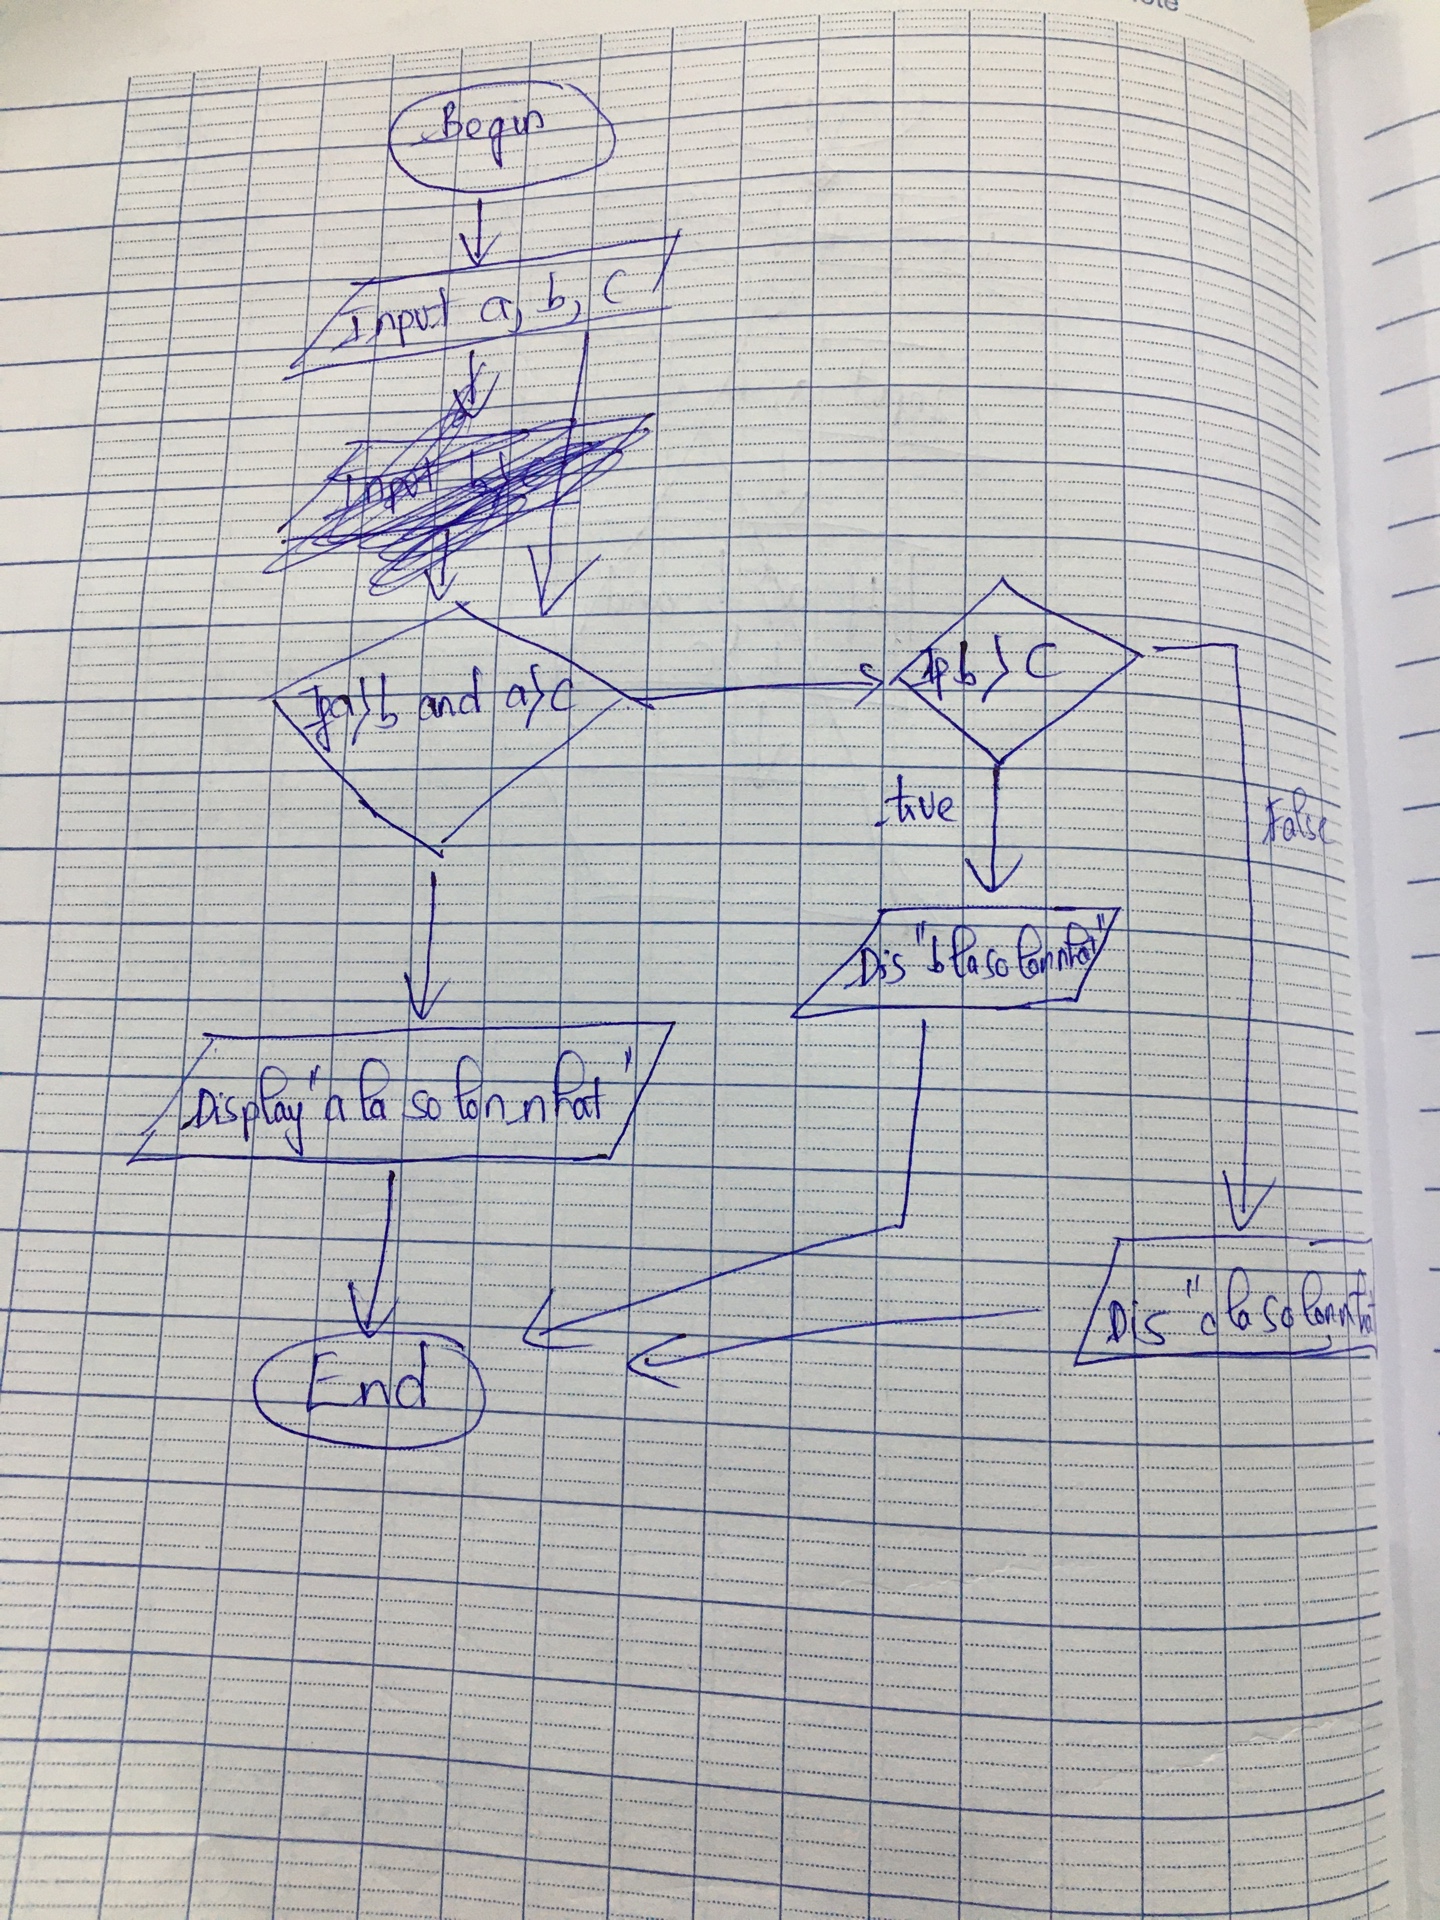 Begin
Input a, b, c
Input b, c
If a>b and a>c
If b > c
true
False
Dis "b la so lon nhat"
Display "a la so lon nhat"
Dis "c la so lon nhat
End